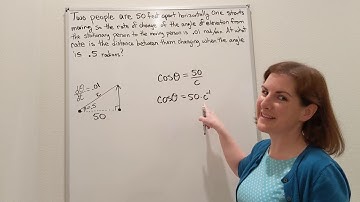 Two people are 50 feet apart horizontally. One starts
moving so the rate of change of the angle of elevation from
the stationary person to the moving person is .01 rad/min. At what
rate is the distance between them changing when the angle
is .5 radians?
dθ/dt = .01
c
θ=.5
50
cosθ = 50/c
cosθ = 50·c⁻¹